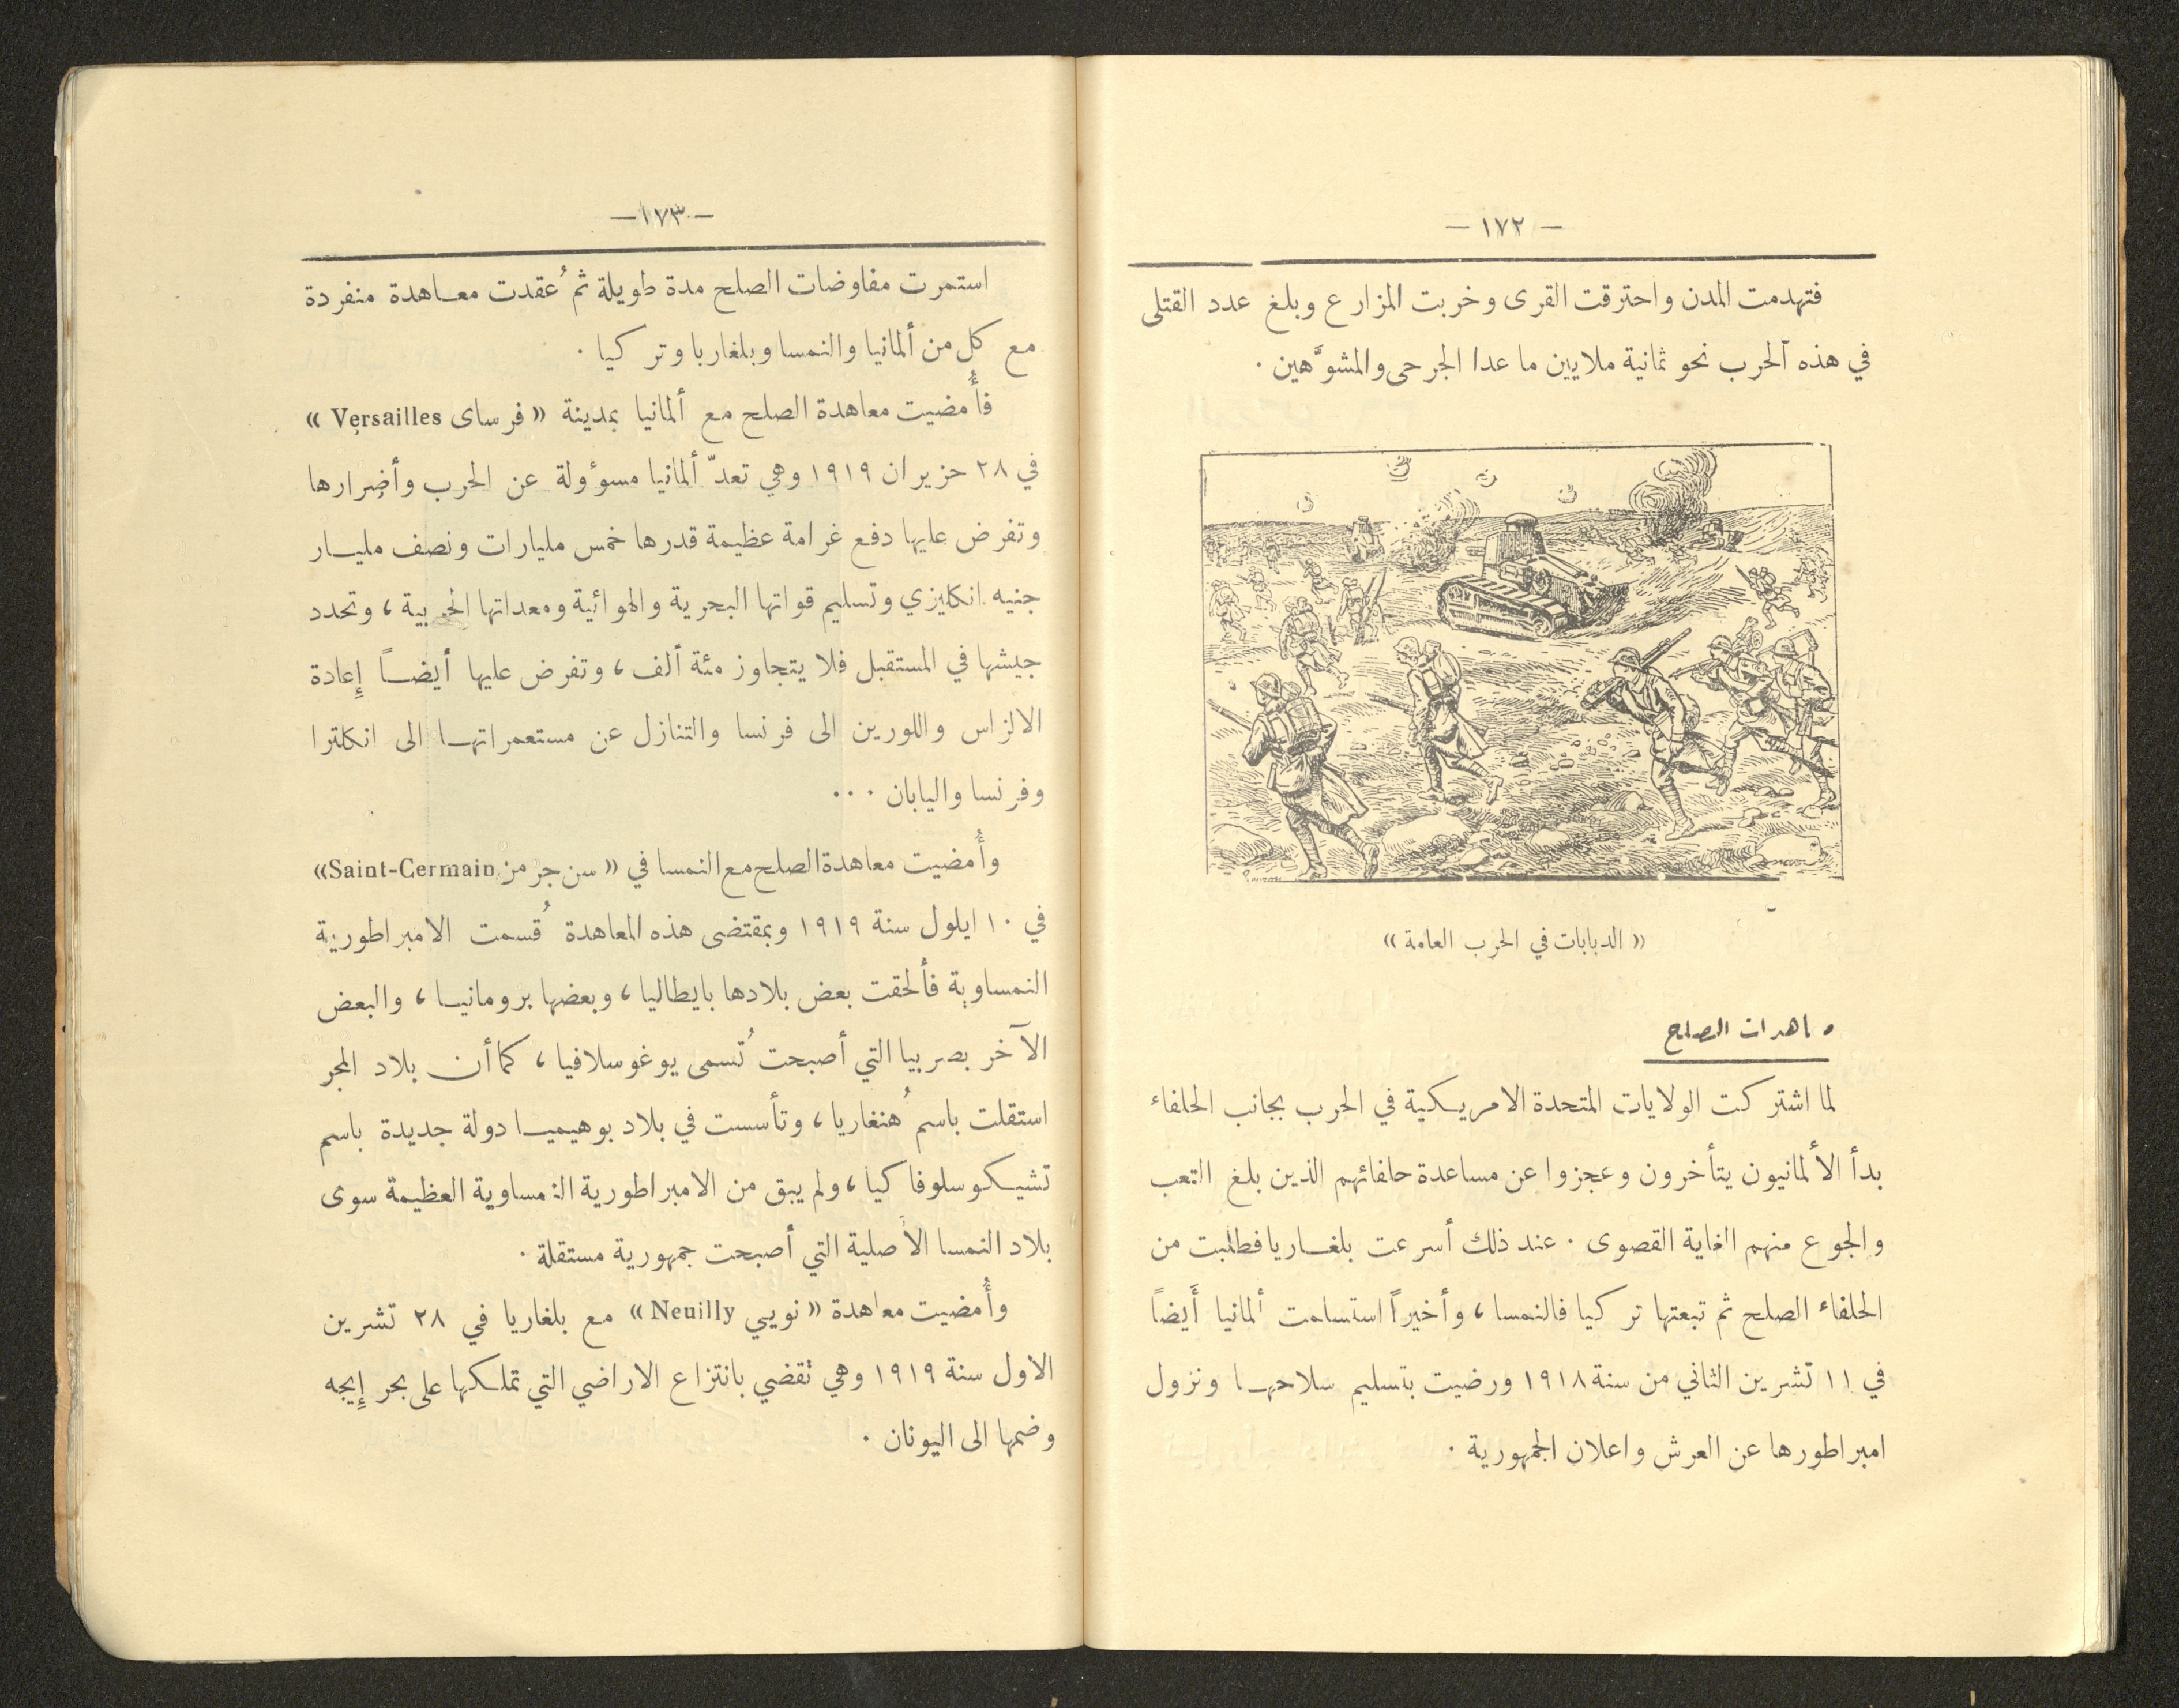 — ١٧٢ —
فتهدمت المدن واحترقت القرى وخربت المزارع وبلغ عدد القتلى
في هذه الحرب نحو ثمانية ملايين ما عدا الجرحى والمشوَّهين .
« الدبابات في الحرب العامة »
معاهدات الصلح
لما اشتركت الولايات المتحدة الامريكية في الحرب بجانب الحلفاء
بدأ الألمانيون يتأخرون وعجزوا عن مساعدة حلفائهم الذين بلغ التعب
والجوع منهم الغاية القصوى . عند ذلك أسرعت بلغاريا فطلبت من
الحلفاء الصلح ثم تبعتها تركيا فالنمسا ، وأخيراً استسلمت ألمانيا أَيضاً
في ١١ تشرين الثاني من سنة ١٩١٨ ورضيت بتسليم سلاحها ونزول
امبراطورها عن العرش واعلان الجمهورية .
— ١٧٣ —
استمرت مفاوضات الصلح مدة طويلة ثم عُقدت معاهدة منفردة
مع كل من ألمانيا والنمسا وبلغاريا وتركيا .
فأُمضيت معاهدة الصلح مع ألمانيا بمدينة « فرساى Versailles »
في ٢٨ حزيران ١٩١٩ وهي تعدّ ألمانيا مسؤولة عن الحرب وأضرارها
وتفرض عليها دفع غرامة عظيمة قدرها خمس مليارات ونصف مليار
جنيه انكليزي وتسليم قواتها البحرية والهوائية ومعداتها الحربية ، وتحدد
جيشها في المستقبل فلا يتجاوز مئة ألف ، وتفرض عليها أيضاً إِعادة
الالزاس واللورين الى فرنسا والتنازل عن مستعمراتها الى انكلترا
وفرنسا واليابان . . .
وأُمضيت معاهدة الصلح مع النمسا في « سن جرمن Saint-Cermain »
في ١٠ ايلول سنة ١٩١٩ وبمقتضى هذه المعاهدة قُسمت الامبراطورية
النمساوية فألحقت بعض بلادها بايطاليا ، وبعضها برومانيا ، والبعض
الآخر بصربيا التي أصبحت تُسمى يوغوسلافيا ، كما أن بلاد المجر
استقلت باسم هُنغاريا ، وتأسست في بلاد بوهيميا دولة جديدة باسم
تشيكوسلوفاكيا ، ولم يبق من الامبراطورية النمساوية العظيمة سوى
بلاد النمسا الأصلية التي أصبحت جمهورية مستقلة .
وأُمضيت معاهدة « نويي Neuilly » مع بلغاريا في ٢٨ تشرين
الاول سنة ١٩١٩ وهي تقضي بانتزاع الاراضي التي تملكها على بحر إِيجه
وضمها الى اليونان .